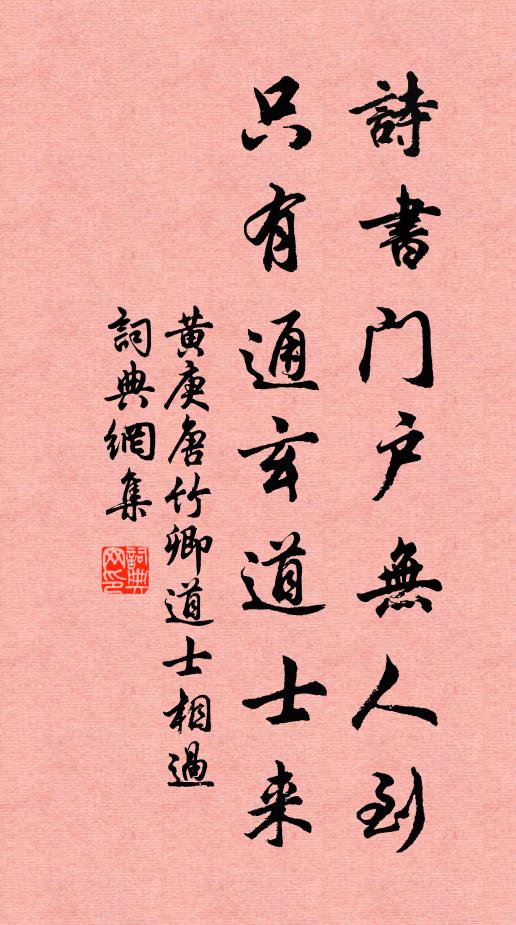 詩書门户無人到
只有通玄道士来
黄庚唐竹卿道士相過
詞典網集
詞典
网印